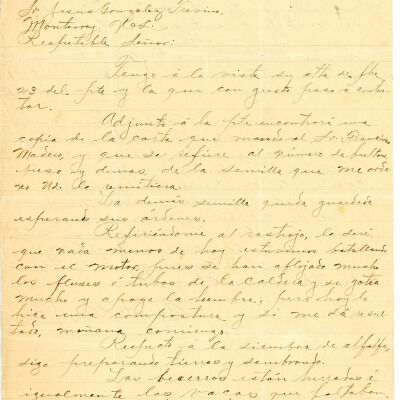 Sr. Jesús González Treviño,
Monterrey, N.L.
Respetible Señor:
Tengo á la vista su atta de fha
23 del pte y la que con gusto paso á contes-
tar.
Adjunto á la pte encontrará una
copia de la carta que mandó al Sr. Francisco
Madero, y que se refiere al número de bultos,
peso y demas, de la semilla que me orde
no Ud. le remitiera.
La demás semilla queda guardada
esperando sus ordenes.
Refiriéndome al rastrojo, le seré
que nada menos de hoy estuvimos batallando
con el motor, pues se han aflojado mucho
los fluses ó tubos de la caldera y se gotea
mucho y apaga la lumbre, pero hoy le
hice una compostura y si me dá resul
tado, mañana comienzo.
Respecto á la siembra de alfalfa,
sigo preparando tierras y sembrando.
Los becerros están herrados é
igualmente las vacas que faltaban.